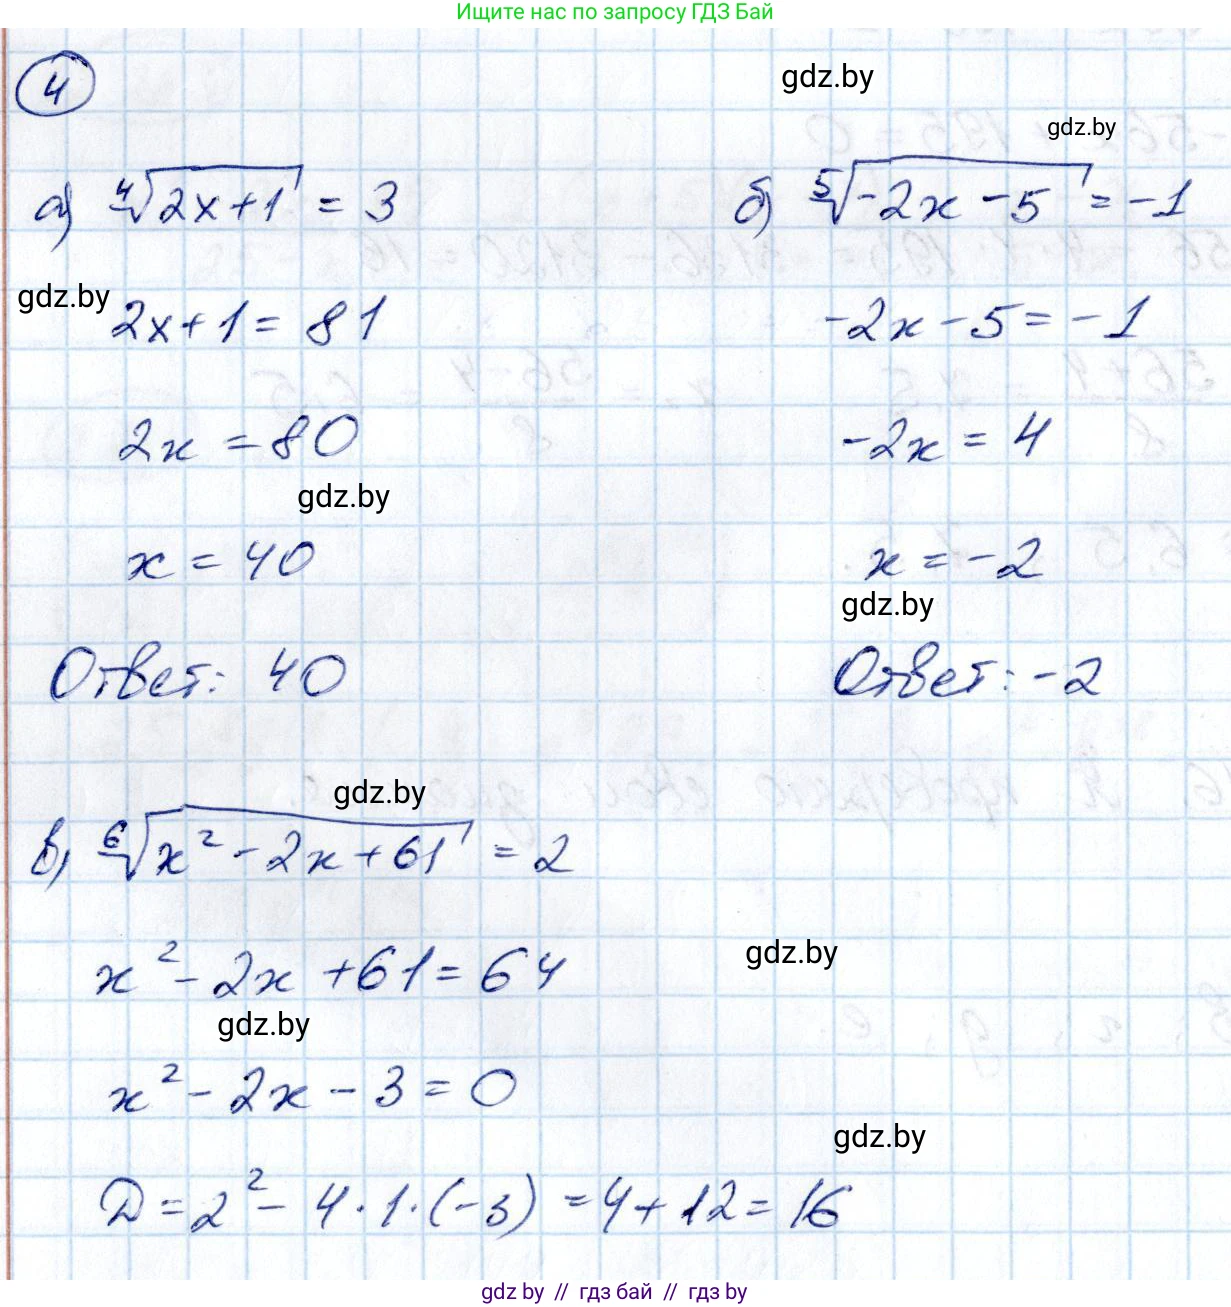 Ищите нас по запросу ГДЗ Бай
4
gdz.by
gdz.by
а) ⁴√(2x+1) = 3
2x+1 = 81
gdz.by
2x = 80
gdz.by
x = 40
Ответ: 40
б) ⁵√(-2x-5) = -1
-2x-5 = -1
-2x = 4
x = -2
gdz.by
Ответ: -2
gdz.by
в) ⁶√(x²-2x+61) = 2
x²-2x+61 = 64
gdz.by
gdz.by
x²-2x-3 = 0
gdz.by
Д = 2²-4·1·(-3) = 4+12 = 16
gdz by // гдз бай // гдз by